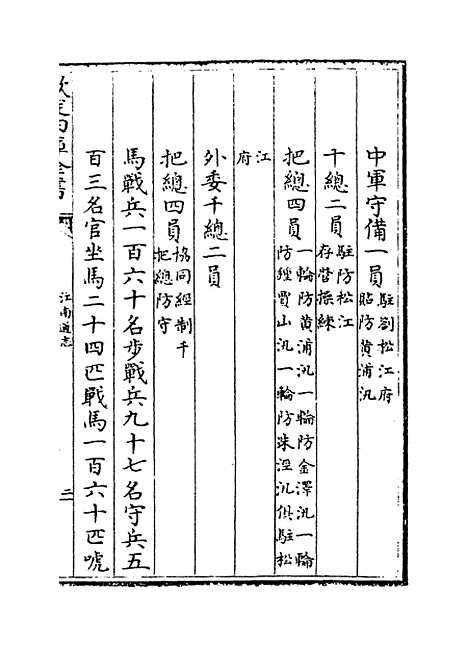 中軍守備一員駐劄松江府
貼防黄浦汛
千總二員駐防松江
存營操練
把總四員一輪防黄浦汛一輪防金澤汛一輪
防經賈山汛一輪防珠涇汛俱駐松
江
府
外委千總二員
把總四員協同經制千
把總防守
馬戰兵一百六十名步戰兵九十七名守兵五
百三名官坐馬二十四匹戰馬一百六十匹唬
欽定四庫全書
江南通志
三